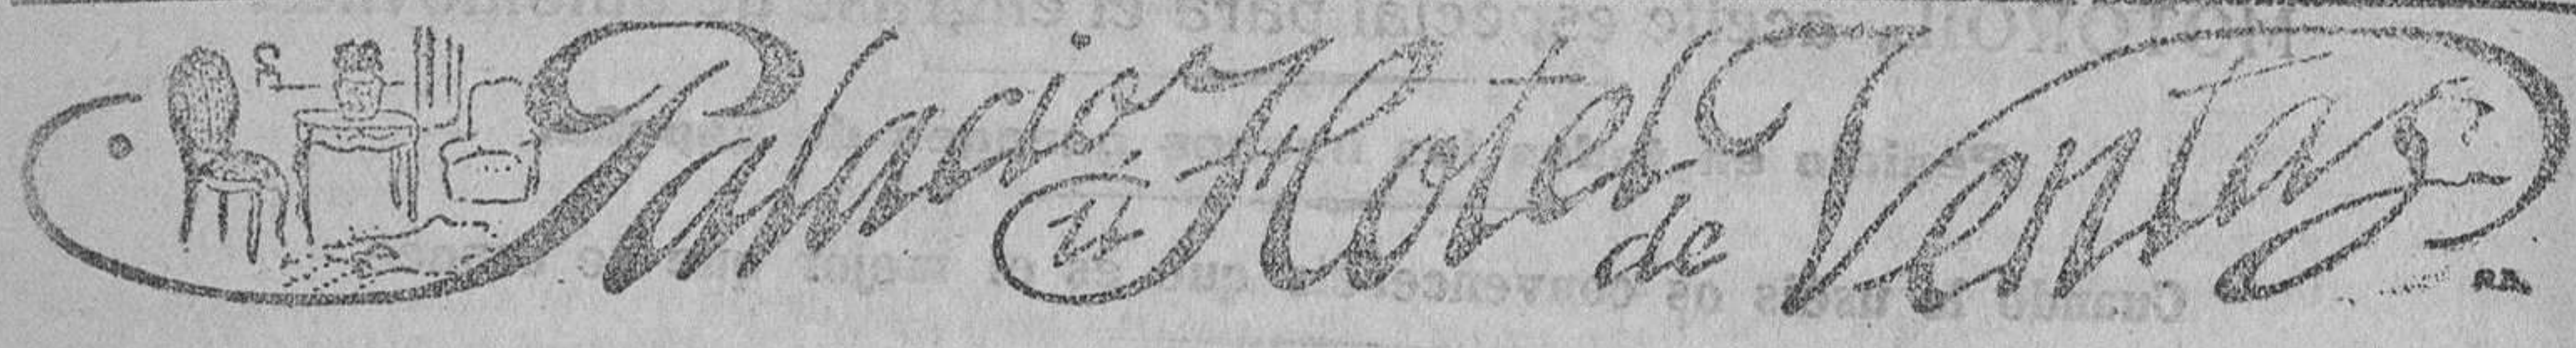 Palacio Hotel de Ventas
R.A.